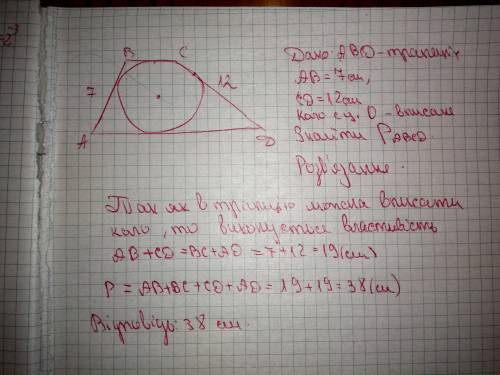 B C
7 12
A D
Дано: ABD - трапеція
AB = 7 см,
CD = 12 см
Коло з ц. O - вписане
Знайти P ABCD
Розв'язання.
Так як в трапецію можна вписати
коло, то виконується властивість
AB + CD = BC + AD = 7 + 12 = 19 (см)
P = AB + BC + CD + AD = 19 + 19 = 38 (см)
Відповідь: 38 см.